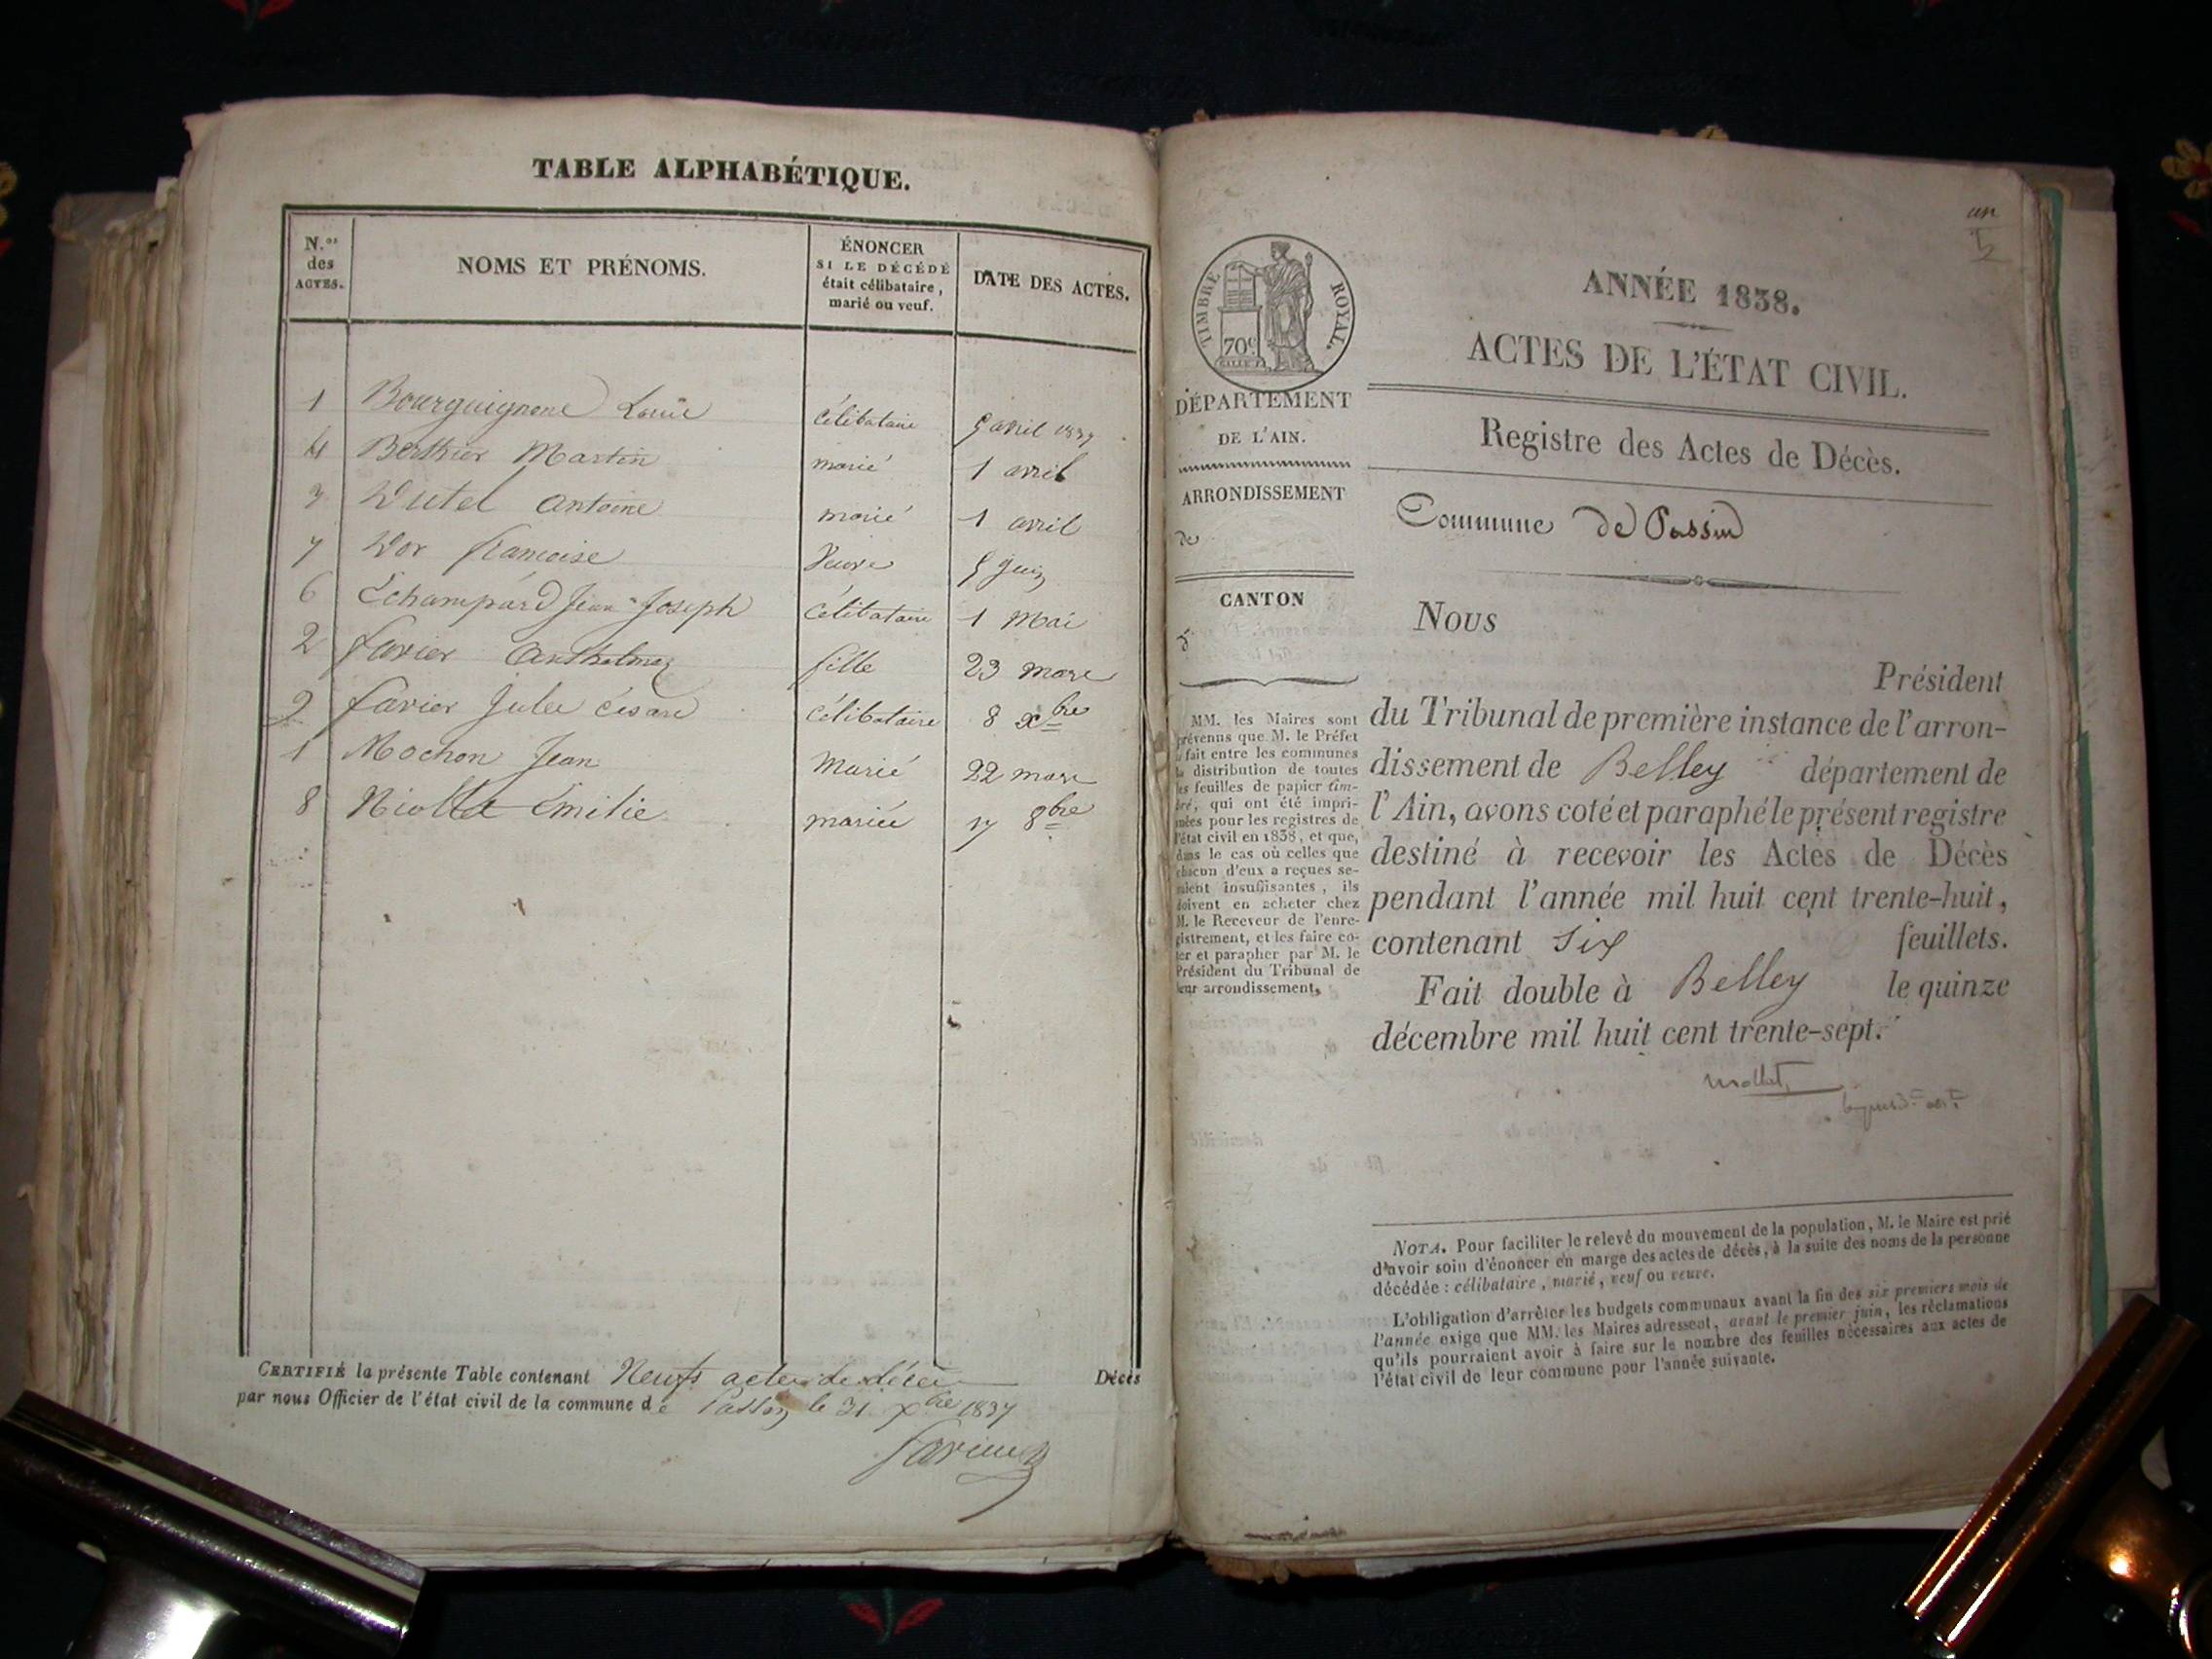 TABLE ALPHABÉTIQUE.
N.os des ACTES.
NOMS ET PRÉNOMS.
ÉNONCER
SI LE DÉCÉDÉ
était célibataire,
marié ou veuf.
DATE DES ACTES.
1 Bourguignone Louise célibataire 5 avril 1837
4 Berthier Martin marié 1 avril
3 Dutel antoine marié 1 avril
7 Dor francoise Veuve 5 Juin
6 Echampard Jean Joseph Célibataire 1 Mai
2 favier Anthelmez fille 23 mars
9 favier Jules César célibataire 8 xbre
1 Mochon Jean Marié 22 mars
8 Niollet émilie mariée 17 8bre
CERTIFIÉ la présente Table contenant Neufs actes de décès Décès
par nous Officier de l'état civil de la commune de Passin le 31 xbre 1837
un
TIMBRE ROYAL.
70c
DÉPARTEMENT
DE L'AIN.
ARRONDISSEMENT
de
CANTON
d
MM. les Maires sont
prévenus que M. le Préfet
a fait entre les communes
la distribution de toutes
les feuilles de papier tim-
bré, qui ont été impri-
mées pour les registres de
l'état civil en 1838, et que,
dans le cas où celles que
chacun d'eux a reçues se-
raient insuffisantes, ils
doivent en acheter chez
M. le Receveur de l'enre-
gistrement, et les faire co-
ter et parapher par M. le
Président du Tribunal de
leur arrondissement.
ANNÉE 1838.
ACTES DE L'ÉTAT CIVIL.
Registre des Actes de Décès.
Commune de Passin
Nous
Président
du Tribunal de première instance de l'arron-
dissement de Belley département de
l'Ain, avons coté et paraphé le présent registre
destiné à recevoir les Actes de Décès
pendant l'année mil huit cent trente-huit,
contenant Six feuillets.
Fait double à Belley le quinze
décembre mil huit cent trente-sept.
NOTA. Pour faciliter le relevé du mouvement de la population, M. le Maire est prié
d'avoir soin d'énoncer en marge des actes de décès, à la suite des noms de la personne
décédée : célibataire, marié, veuf ou veuve.
L'obligation d'arrêter les budgets communaux avant la fin des six premiers mois de
l'année exige que MM. les Maires adressent, avant le premier juin, les réclamations
qu'ils pourraient avoir à faire sur le nombre des feuilles nécessaires aux actes de
l'état civil de leur commune pour l'année suivante.